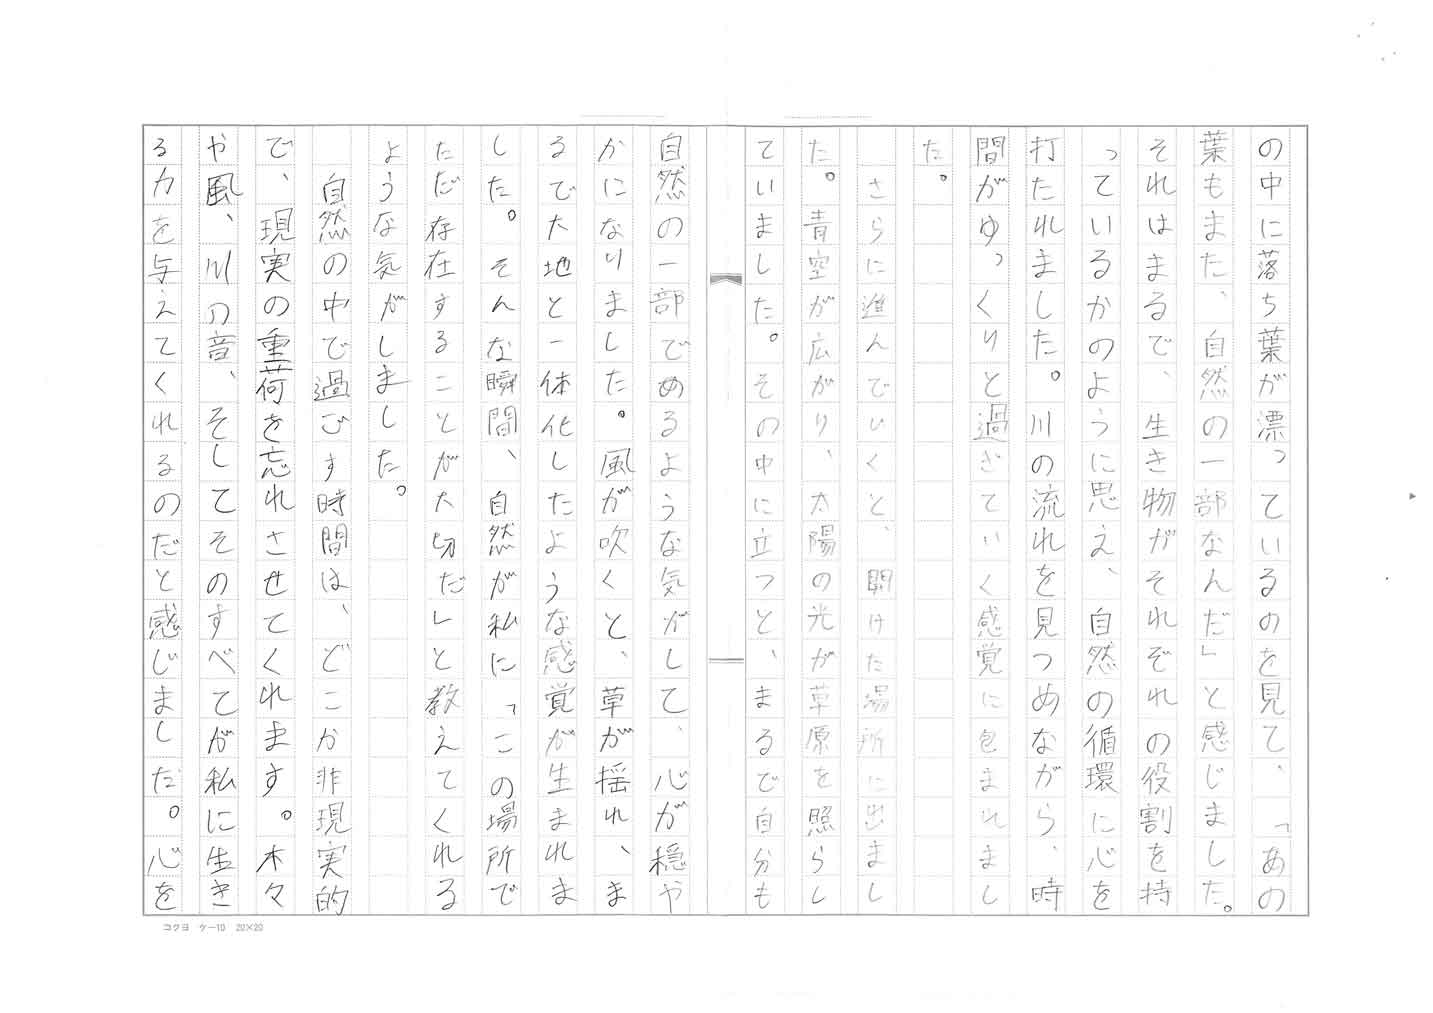 の中に落ち葉が漂っているのを見て、「あの
葉もまた、自然の一部なんだ」と感じました。
それはまるで、生き物がそれぞれの役割を持
っているかのように思え、自然の循環に心を
打たれました。川の流れを見つめながら、時
間がゆっくりと過ぎていく感覚に包まれまし
た。
さらに進んでいくと、開けた場所に出まし
た。青空が広がり、太陽の光が草原を照らし
ていました。その中に立つと、まるで自分も
自然の一部であるような気がして、心が穏や
かになりました。風が吹くと、草が揺れ、ま
るで大地と一体化したような感覚が生まれま
した。そんな瞬間、自然が私に「この場所で
ただ存在することが大切だ」と教えてくれる
ような気がしました。
自然の中で過ごす時間は、どこか非現実的
で、現実の重荷を忘れさせてくれます。木々
や風、川の音、そしてそのすべてが私に生き
る力を与えてくれるのだと感じました。心を
コクヨ ケー10 20×20